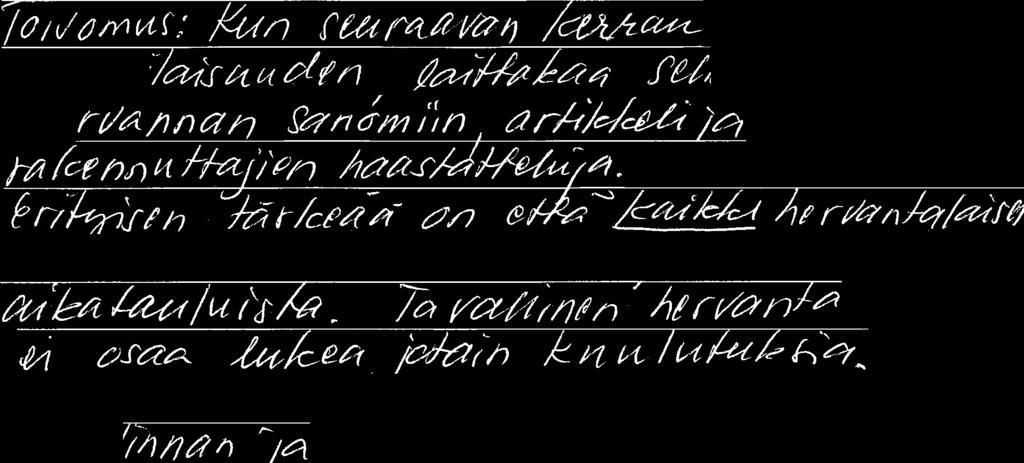 Toivomus: Kun seuraavan kerran
laisuuden, laittakaa
rvannan sanomiin, artikkeli ja
rakennuttajien haastatteluja.
Erityisen tärkeää on että kaikki hervantalaiset
aikatauluista. Tavallinen hervanta
ei osaa lukea jotain kuulutuksia.
innan ja